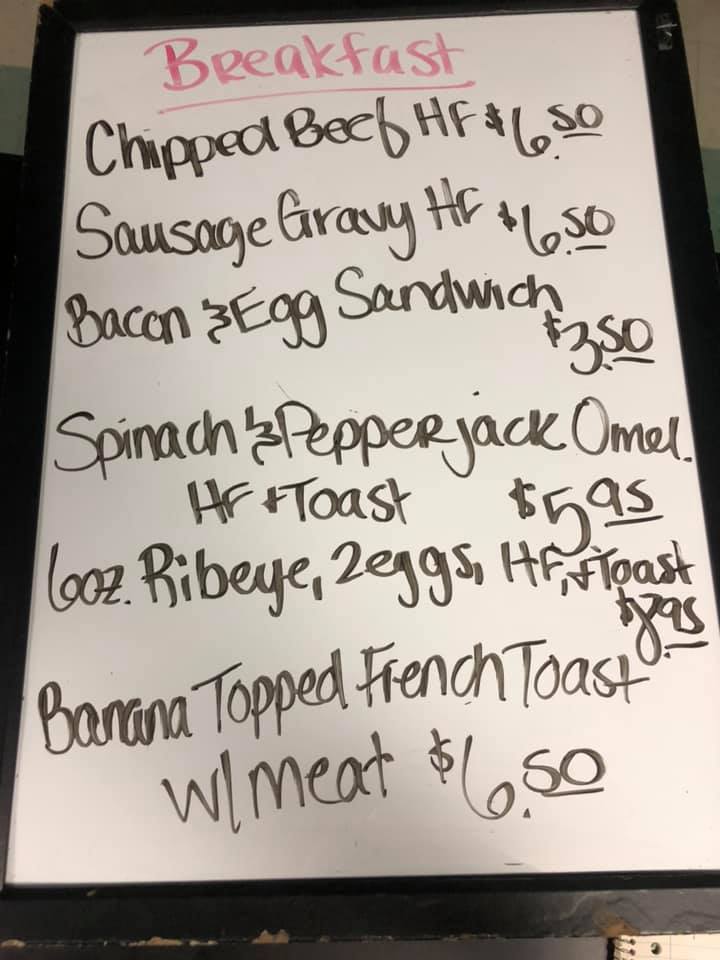 Breakfast
Chipped Beef HF $6.50
Sausage Gravy HF $6.50
Bacon & Egg Sandwich
$3.50
Spinach & Pepperjack Omel.
HF + Toast $5.95
6oz. Ribeye, 2eggs, HF, + Toast
$8.95
Banana Topped French Toast
w/meat $6.50